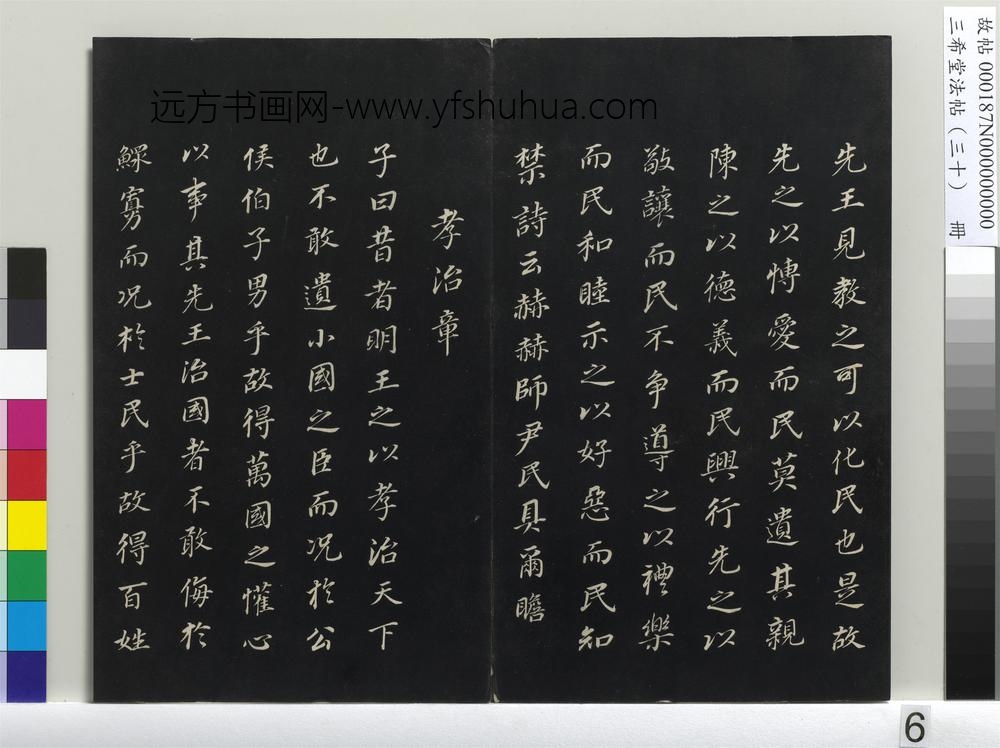 远方书画网-www.yfshuhua.com
故帖 000187N000000000
三希堂法帖（三十） 冊
先王見教之可以化民也是故
先之以博愛而民莫遺其親
陳之以德義而民興行先之以
敬讓而民不争導之以禮樂
而民和睦示之以好惡而民知
禁詩云赫赫師尹民具爾瞻
孝治章
子曰昔者明王之以孝治天下
也不敢遺小國之臣而况於公
侯伯子男乎故得萬國之懽心
以事其先王治國者不敢侮於
鰥寡而况於士民乎故得百姓
6